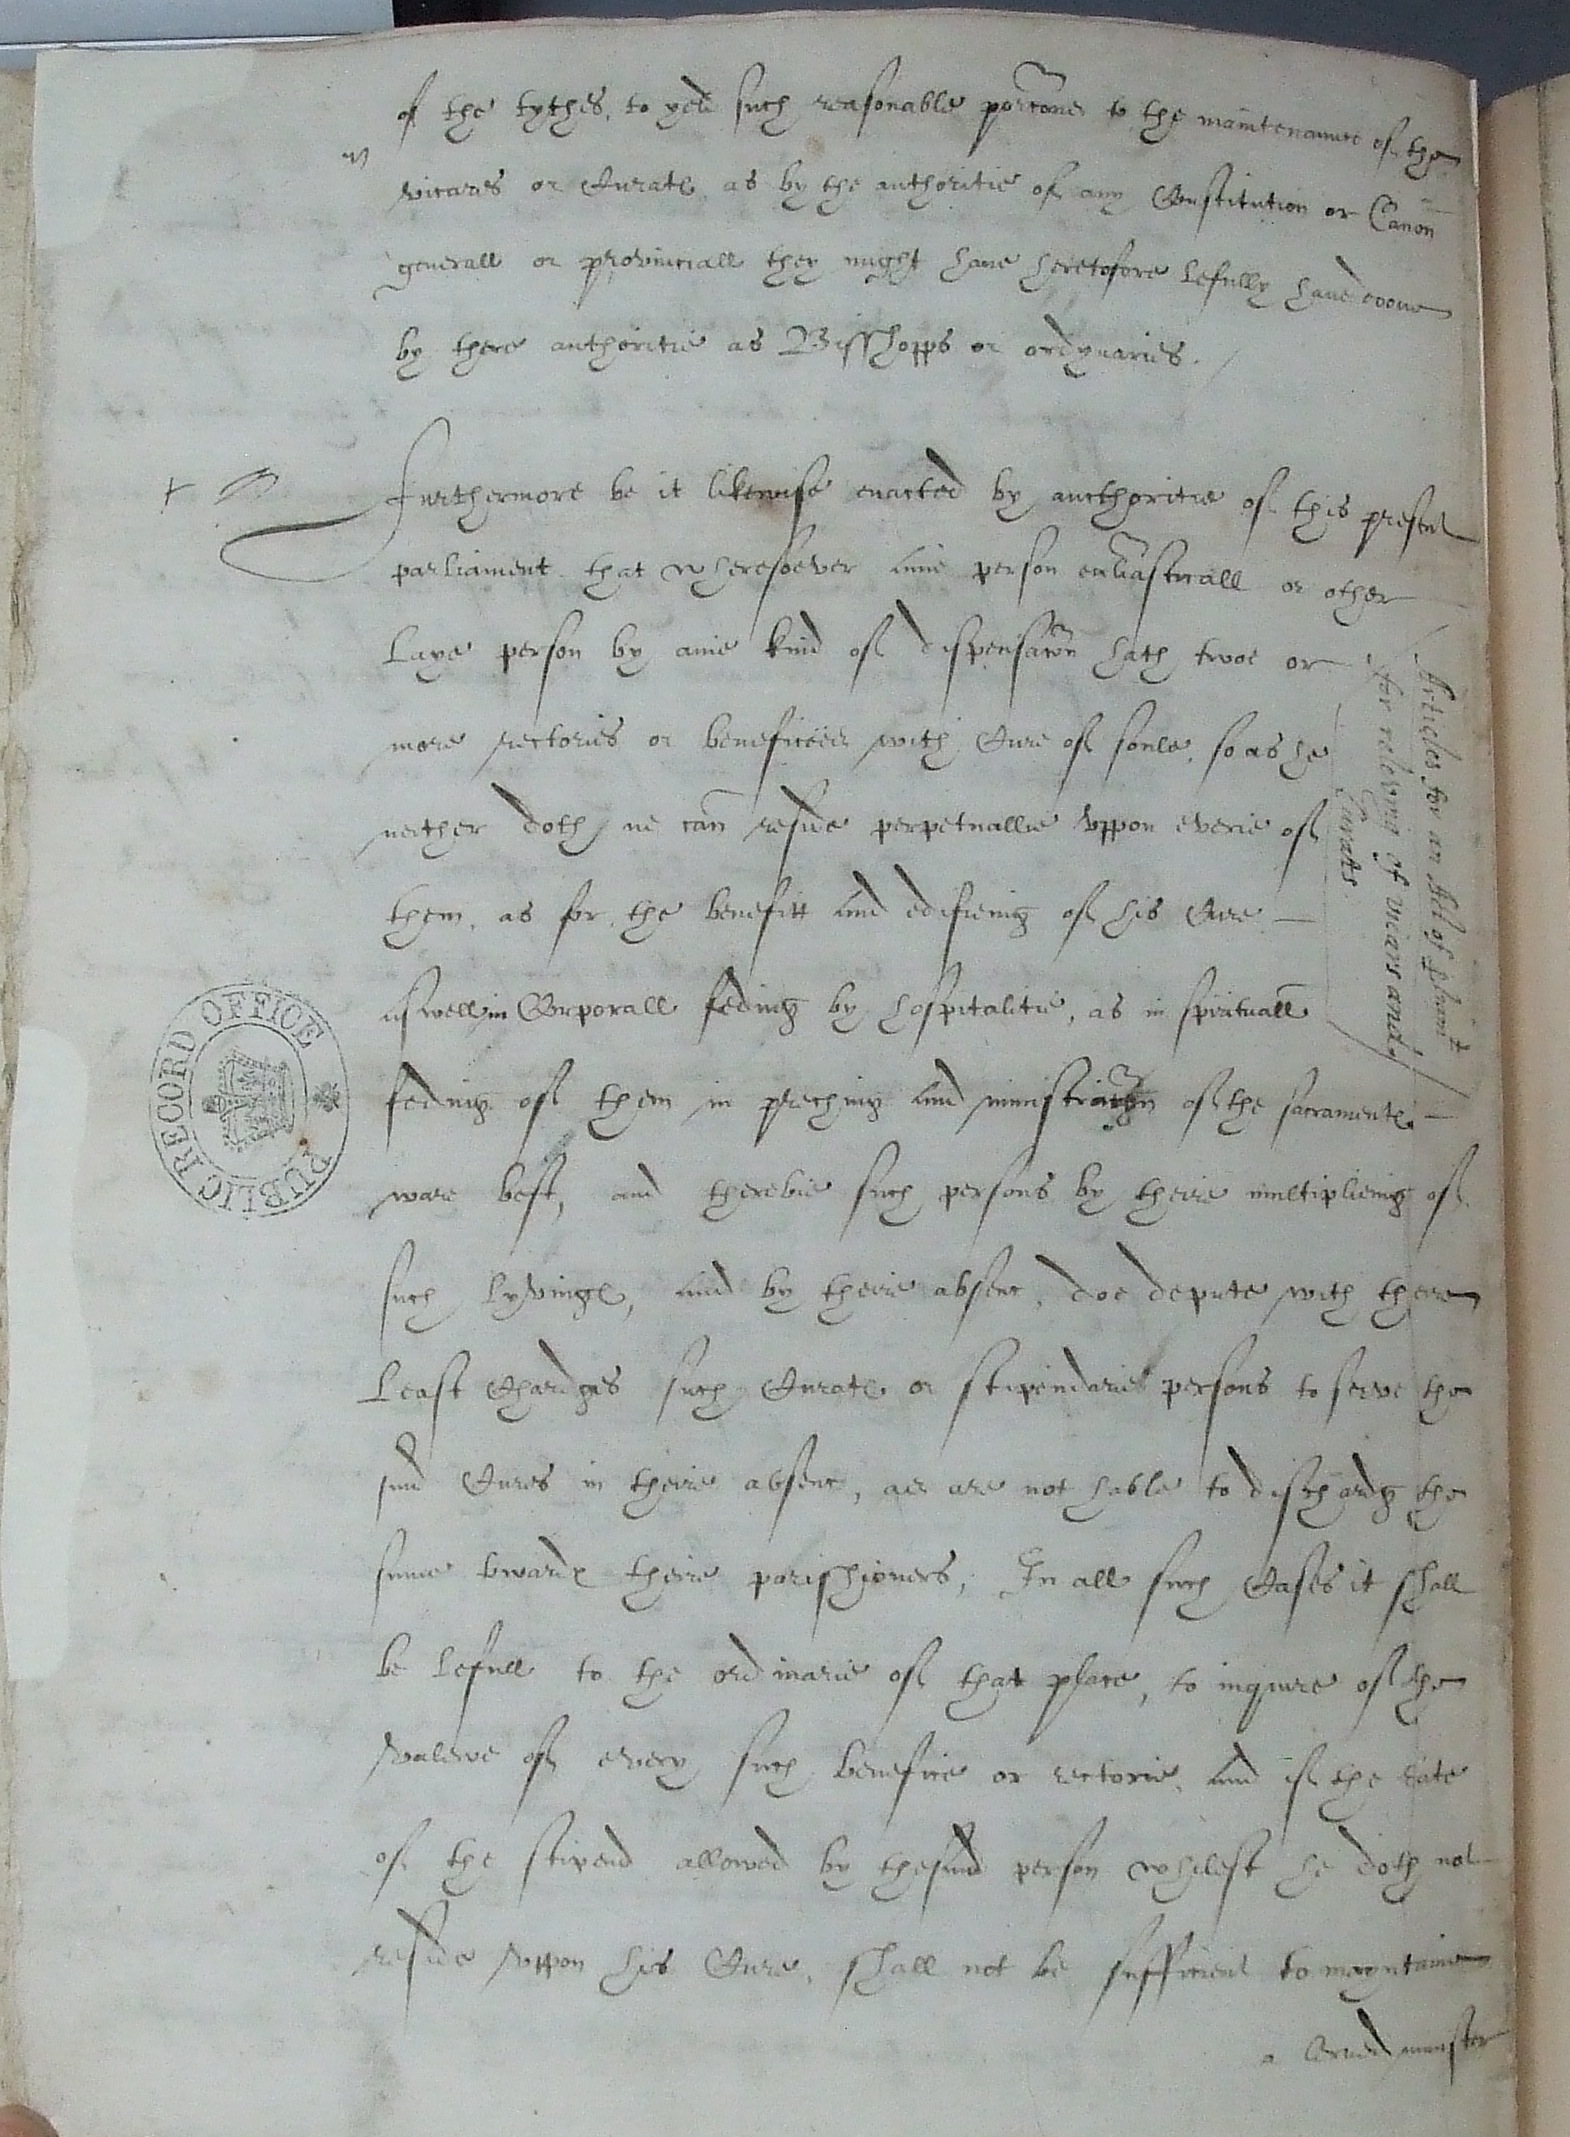 of the tythes, to yeld such reasonable porcone to the maintenaunce of the
vicares or Curates as by the authoritie of any Constitution or Canon
generall or provinciall they might have heretofore lefully have doone
by there authoritie as Bisshopps or ordynaries.
Furthermore be it likewise enacted by aucthoritie of this present
parliament that wheresoever anie person ecclasticall or other
Laye person by anie kind of dispensacon hath twoe or
more rectories or benefices with Cure of soule, so as he
neither doth ne can reside perpetuallie uppon everie of
them, as for the benefitt and edifieing of his Cure
aswell in Corporall feding by hospitalitie, as in spirituall
feding of them in preching and ministracon of the sacramentes
ware best, and therebie such persons by theire multiplieing of
such lyvinges, and by theire absenc, doe depute with there
Least Chardges such Curates or stipendaries persons to serve the
said Cures in theire absenc, as are not hable to dischardg the
same towardes theire parishioners, In all such Cases it shall
be lefull to the ordinarie of that place, to inquire of the
valewe of every such benefice or rectorie, and if the rate
of the stipend allowed by the said person whilest he doth not
reside uppon his Cure, shall not be sufficient to mayntaine
a lerned minister
Articles for an Act of
for releving of vicars and
Curats
PUBLIC RECORD OFFICE